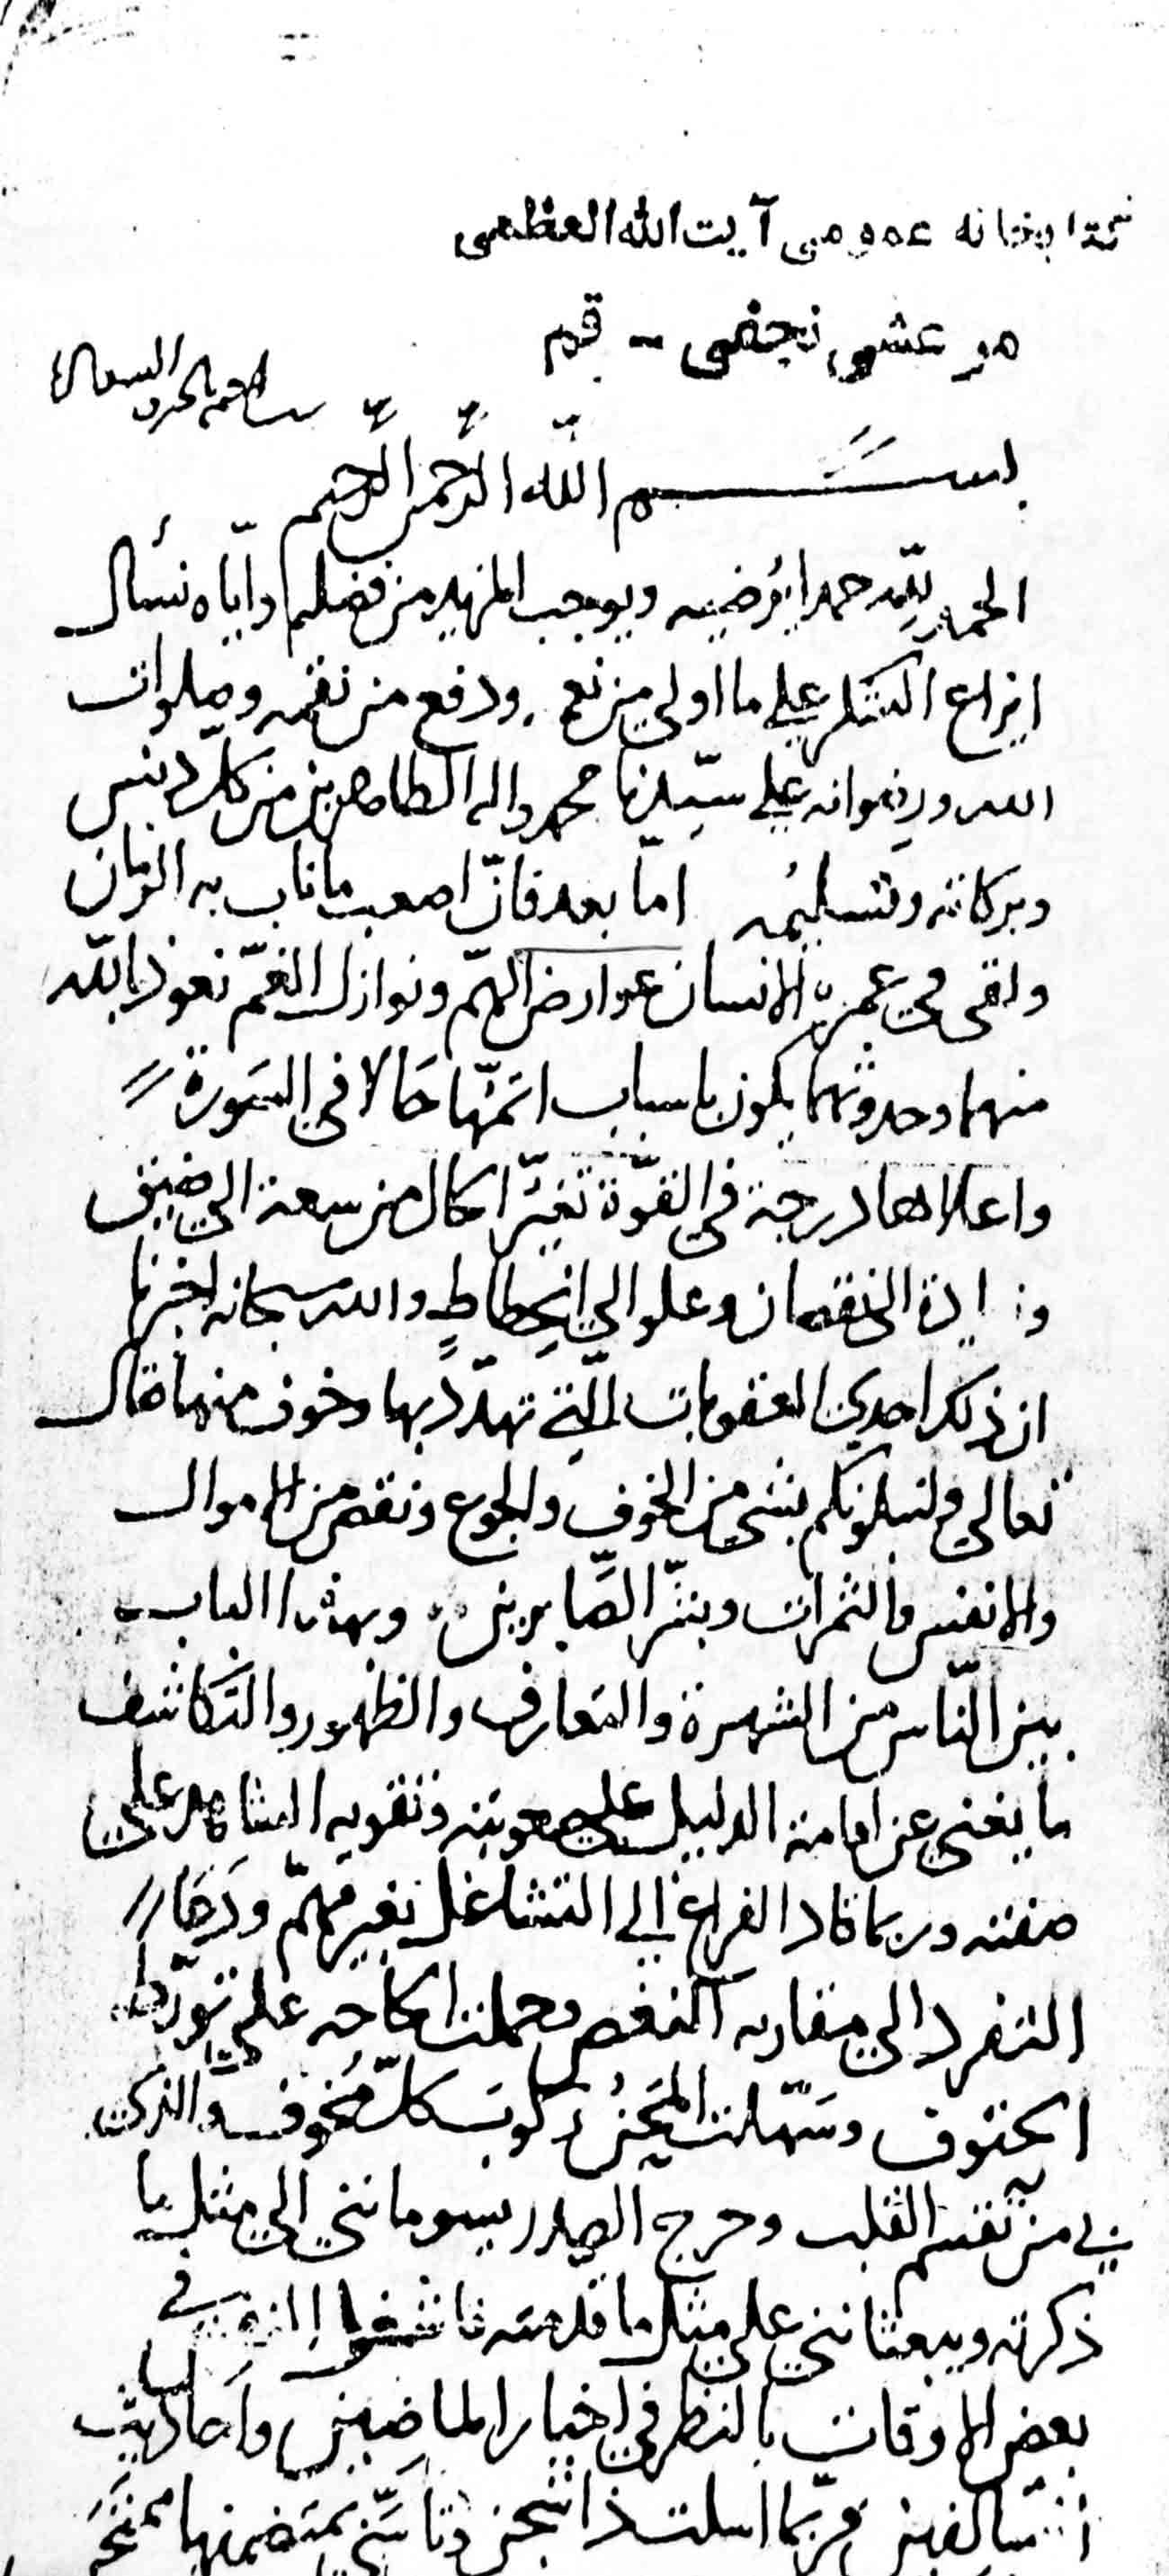 كتابخانه عمومی آیت الله العظمی
مرعشی نجفی - قم
بسم الله الرحمن الرحيم
الحمد لله حمدا يرضيه ويوجب المزيد من فضله واياه نسأل
ايزاع الشكر علي ما اولي من نعمه ودفع من نقمه وصلوات
الله ورضوانه علي سيّدنا محمد واله الطاهرين من كل دنس
وبركاته وتسليمه امّا بعد فانّ اصعب ما ناب به الزمان
ولقى في عمره الانسان عوارض الهمّ ونوازل الغمّ نعوذ بالله
منهما وحدوثهما يكون باسباب اتمّها حَالا في السَورة
واعلاها درجة في القوّة تغيّر الحال من سعة الي ضيق
وزيادة الى نقصان وعلو الي انحِطاطٍ والله سبحانه اخبرنا
ان ذلك احدي العقوبات الّتي تهدّد بها وخوف منها فقال
تعالي ولنبلونكم بشي من الخوف والجوع ونقص من الاموال
والانفس والثمرات وبشّر الصّابرين وبهذا الباب
بين النّاس من الشهرة والتعارف والظهور والتكاشف
ما يغني عن اقامة الدليل علي صعوبته وتقويه المشاهد علي
صفته وربما قاد الفراغ الي التشاغل بغير مهمّ ودَعَا
التفرد الي مقاربه النقص وحملت الحاجه علي تورّط
الحتوف وسَهّلت المحَنُ ركوبَ كلّ مَخوف والذي
بي من تقسّم القلب وحرج الصدر يسومانني الي مثل ما
ذكرته ويبعثانني علي مثل ما قدمته فاشغل النفس في
بعض الاوقات بالنظر في اخبار الماضين واحاديث
السالفين فربّما اسلت ذا شجن وتاسّي بمتضمنها ممتحَن